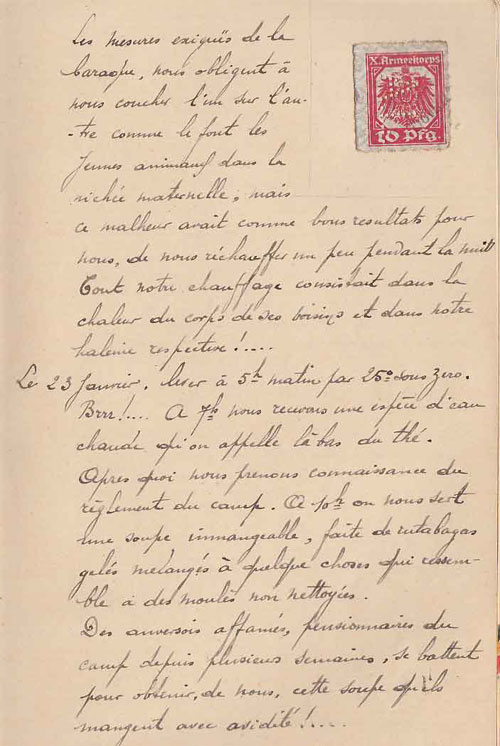 Les mesures exiguës de la
baraque, nous obligent à
nous coucher l'un sur l'au-
-tre comme le font les
jeunes animaux dans la
nichée maternelle; mais
ce malheur avait comme bons resultats pour
nous, de nous réchauffer un peu pendant la nuit
Tout notre chauffage consistait dans la
chaleur du corps de ses voisins et dans notre
haleine respective!....
Le 23 Janvier. lever à 5h matin par 25° sous zero.
Brrr!.... A 7h nous recevons une espèce d'eau
chaude qu'on appelle là bas du thé.
Apres quoi nous prenons connaissance du
règlement du camp. A 10h on nous sert
une soupe immangeable, faite de rutabagas
gelés melangés à quelque choses qui ressem-
ble à des moules non nettoyées.
Des anversois affamés, pensionnaires du
camp depuis plusieurs semaines, se battent
pour obtenir, de nous, cette soupe qu'ils
mangent avec avidité!....
X. Armeekorps
10 Pfg.